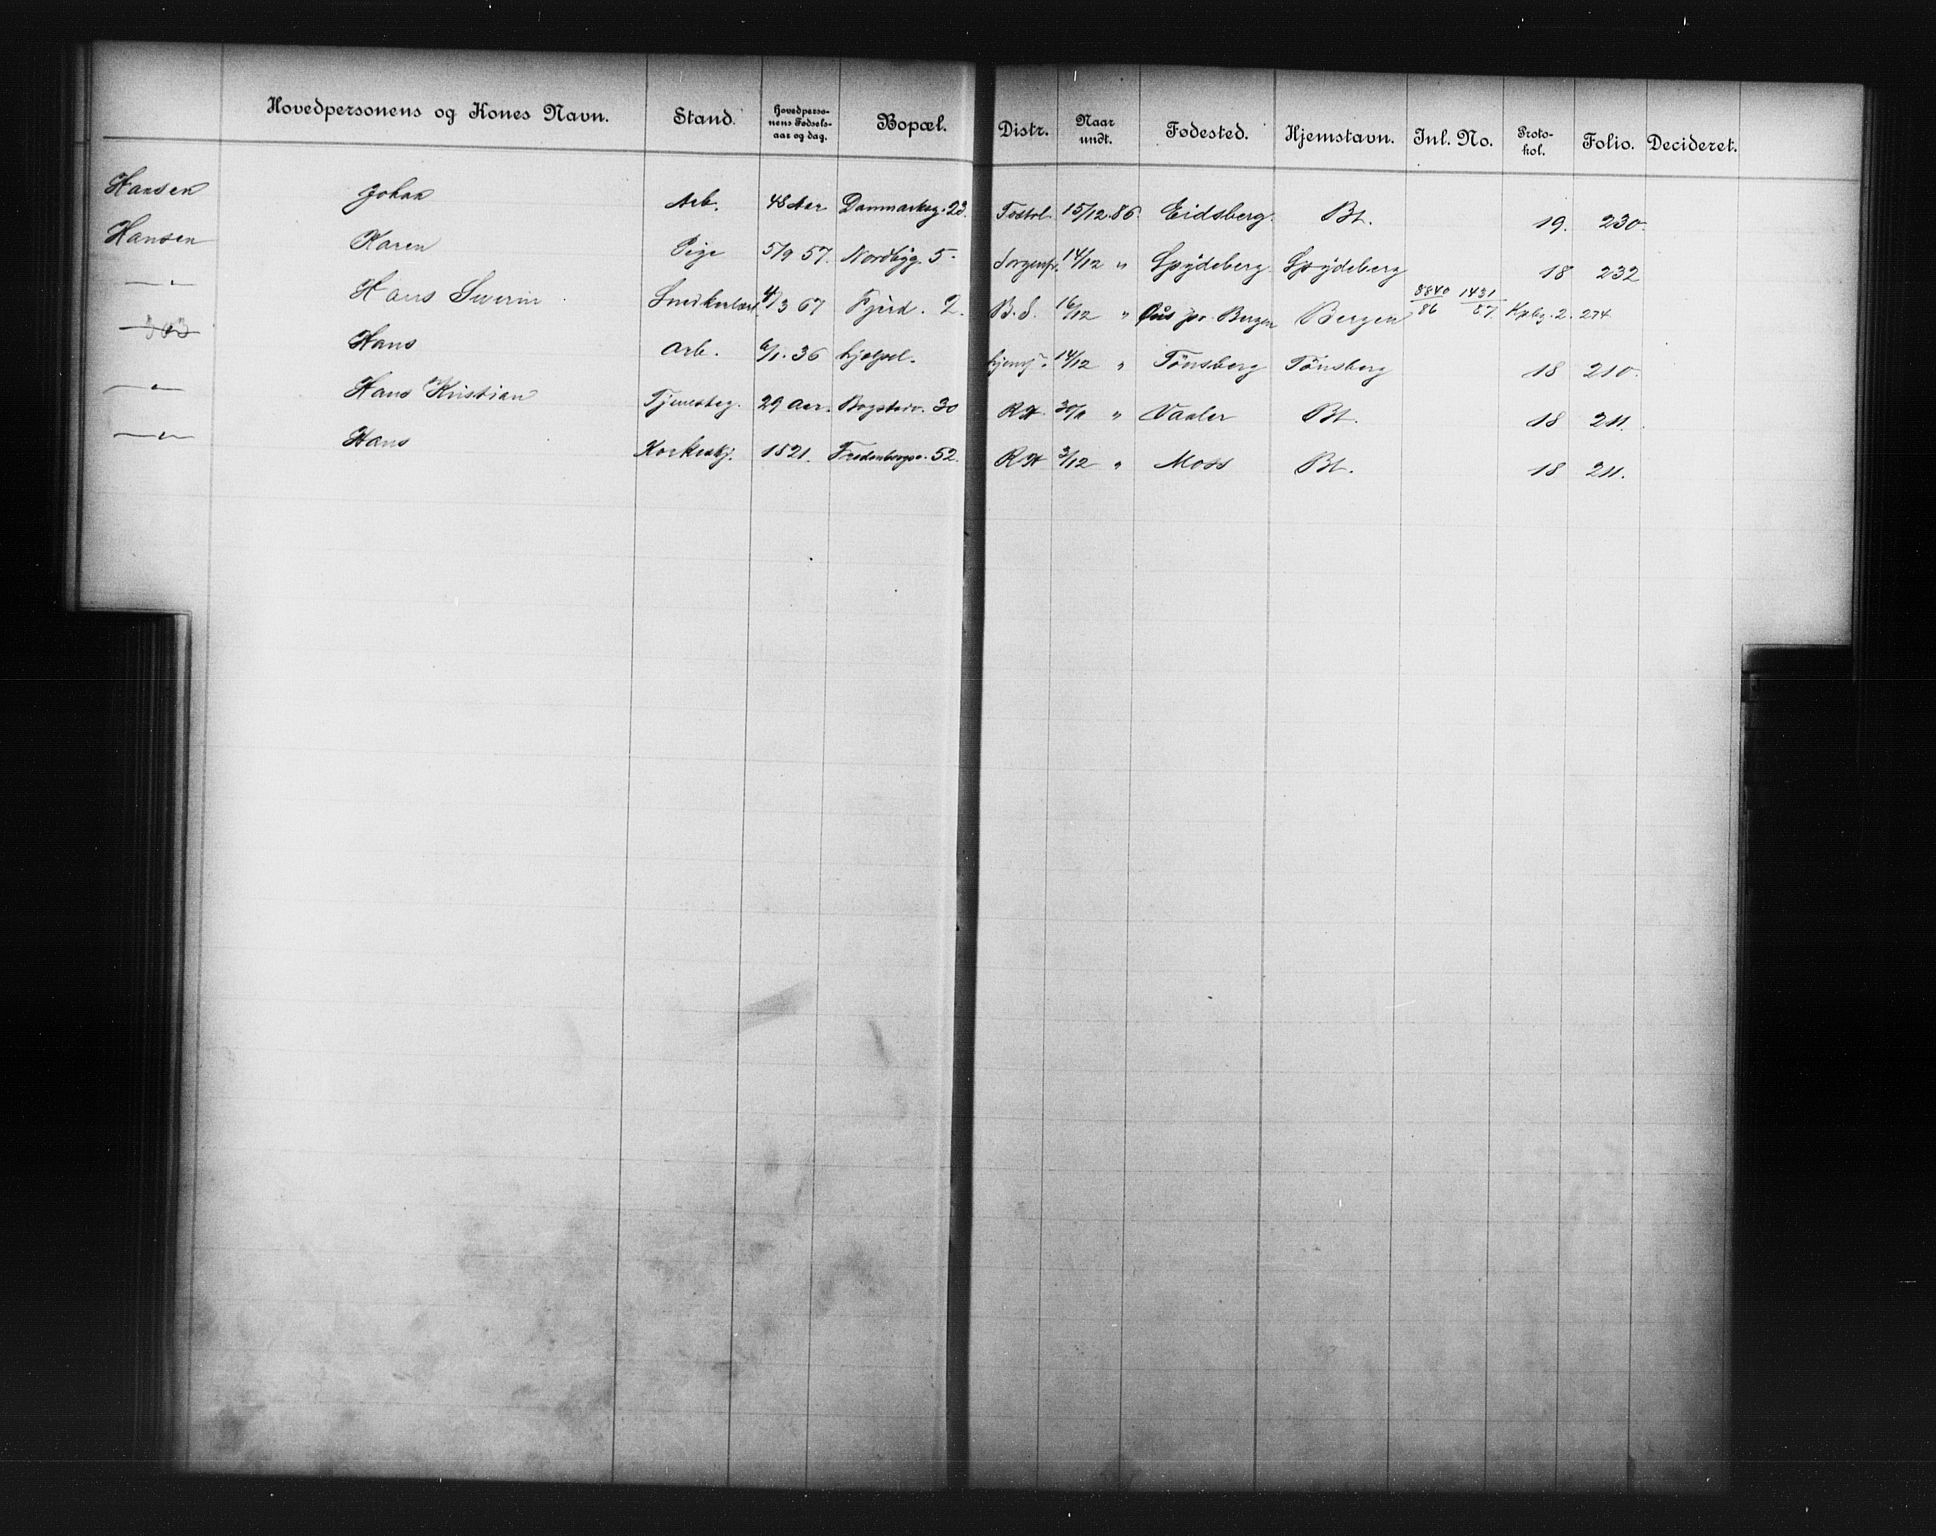 Hovedpersonens og Kones Navn. Stand. Hovedpersonens Fødselsaar og dag. Bopæl. Distr. Naar undt. Fødested. Hjemstavn. Inl. No. Protokol. Folio. Decideret.
Hansen Johan Arb. 48 Aar Danmarksg. 23. 15/12 86. Eidsberg. Bt. 19. 230
Hansen Karen Pige 5/9 57. Nordbyg. 5. Sorgenfr. 14/12 " Spydeberg. Spydeberg 18 232
—"— Hans 4/3 67 Fjerd. 2. B.S. 16/12 " pr. Bergen Bergen 8840/86 1431/87 2. 274
—"— Hans Arb. 6/1. 36 14/12 " Tönsberg Tönsberg 18 210.
—"— Hans Kristian Tjenesteg. 29 Aar. Bogstadv. 30 RH. " Vaaler Bt. 18 211.
—"— Hans 1821. Fredensborgv. 52. RH 3/12 " Moss Bt. 18 211.